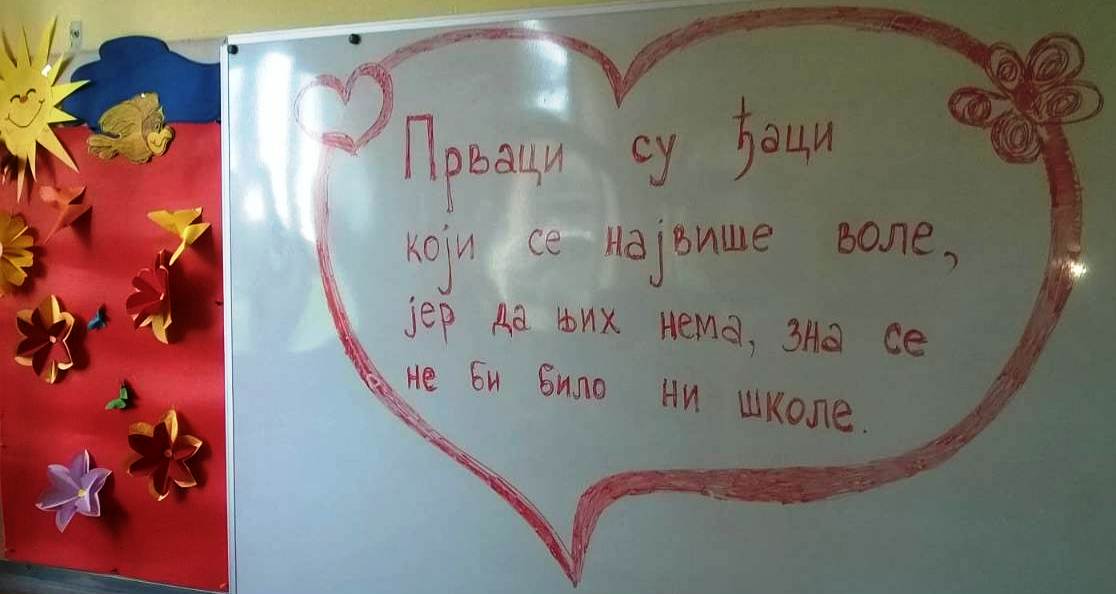 Прваци су ђаци
који се највише воле,
јер да њих нема, зна се
не би било ни школе.